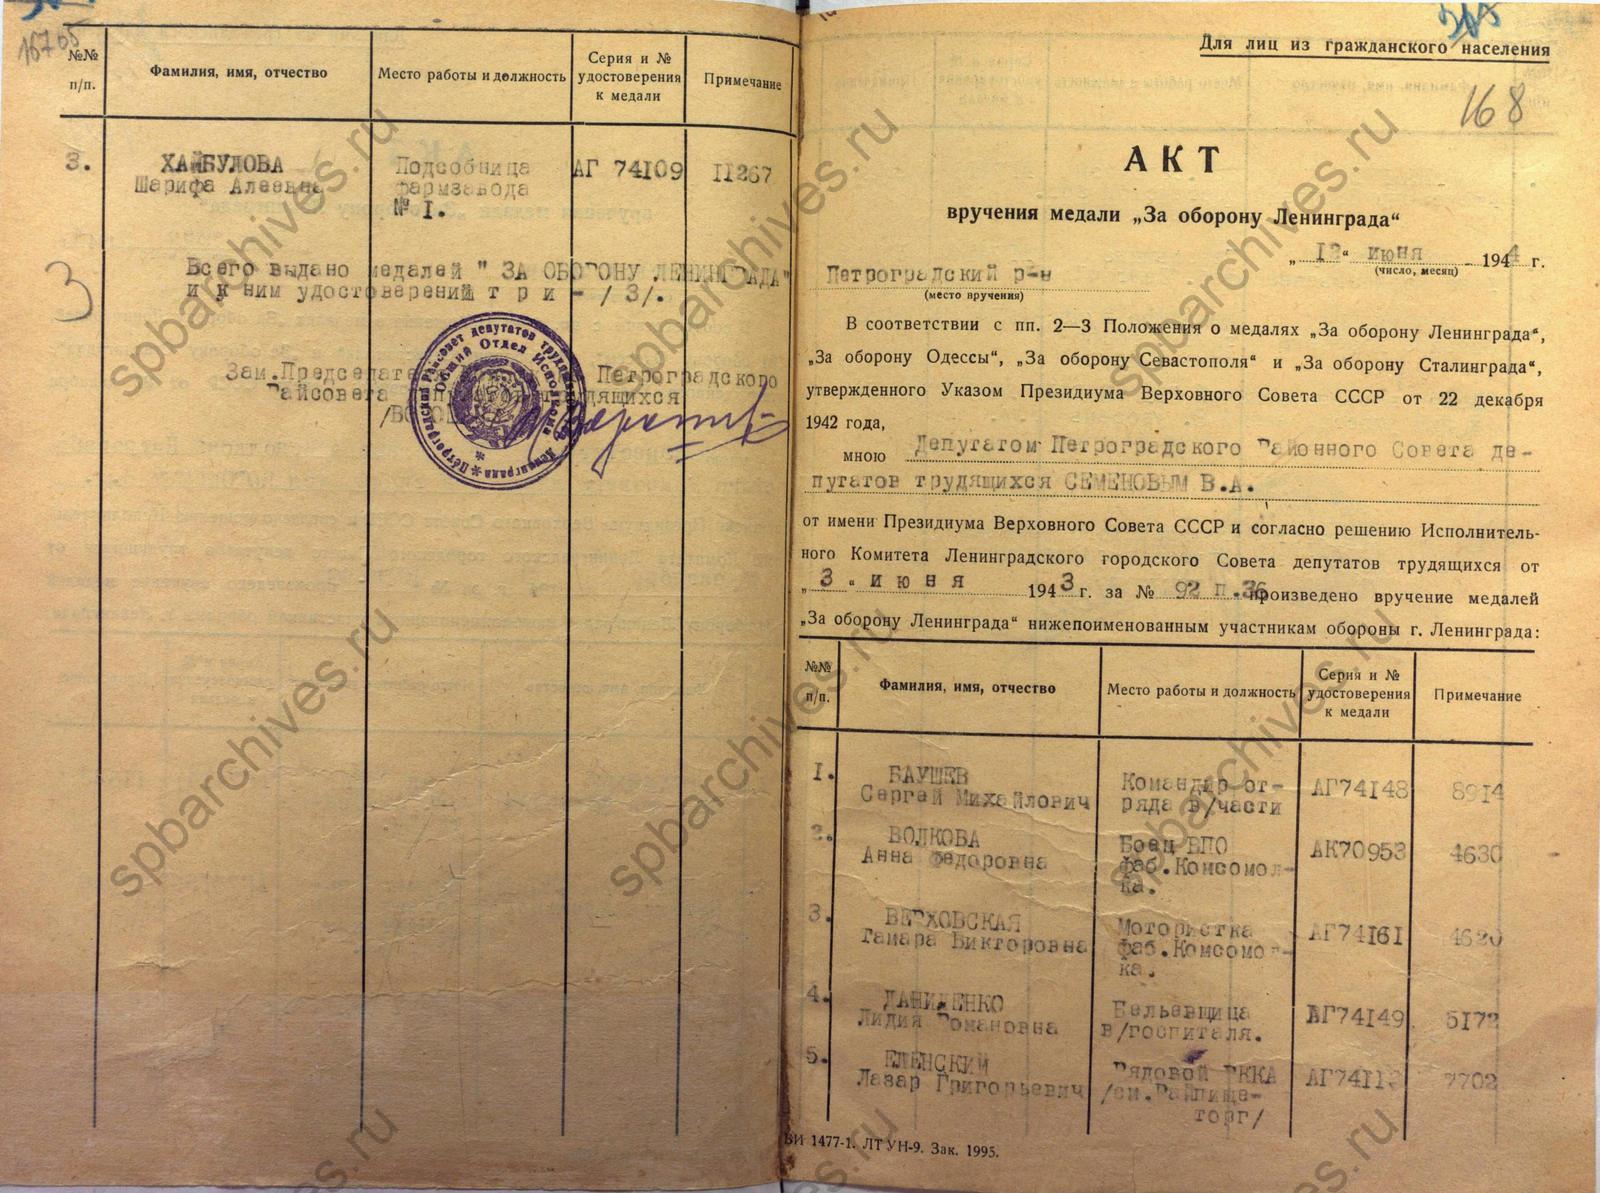 №№ п/п.
Фамилия, имя, отчество
Место работы и должность
Серия и № удостоверения к медали
Примечание
3.
ХАЙБУЛОВА
Шарифа Алеевна
Подсобница
фармзавода
№ I.
АГ 74I09
II267
Всего выдано медалей " ЗА ОБОРОНУ ЛЕНИНГРАДА"
и к ним удостоверений т р и - / 3/.
3
Зам.Председателя Петроградского
Райсовета
Для лиц из гражданского населения
168
АКТ
вручения медали „За оборону Ленинграда“
„ I2“ июня 1944 г.
(число, месяц)
Петроградский р-н
(место вручения)
В соответствии с пп. 2—3 Положения о медалях „За оборону Ленинграда“,
„За оборону Одессы“, „За оборону Севастополя“ и „За оборону Сталинграда“,
утвержденного Указом Президиума Верховного Совета СССР от 22 декабря
1942 года,
мною Депутатом Петроградского Районного Совета де-
путатов трудящихся СЕМЕНОВЫМ В.А.
от имени Президиума Верховного Совета СССР и согласно решению Исполнитель-
ного Комитета Ленинградского городского Совета депутатов трудящихся от
„ 3 “ июня 1943 г. за № 92 п.36 произведено вручение медалей
„За оборону Ленинграда“ нижепоименованным участникам обороны г. Ленинграда:
№№ п/п.
Фамилия, имя, отчество
Место работы и должность
Серия и № удостоверения к медали
Примечание
I.
БАУШЕВ
Сергей Михайлович
Командир от-
ряда в/части
АГ74I48
8914
2.
ВОЛКОВА
Анна Федоровна
Боец ВПО
фаб.Комсомол-
ка.
АК70953
4630
3.
ВЕРХОВСКАЯ
Тамара Викторовна
Мотористка
фаб.Комсомол-
ка.
АГ74I6I
4620
4.
ДАНИЛЕНКО
Лидия Романовна
Бельевщица
в/госпиталя.
АГ74I49
5I72
5.
ЕЛЕНСКИЙ
Лазар Григорьевич
Рядовой РККА
/см.Райпище-
торг/
7702
ВИ 1477-1. ЛТ УН-9. Зак. 1995.
spbarchives.ru
spbarchives.ru
spbarchives.ru
spbarchives.ru
spbarchives.ru
spbarchives.ru